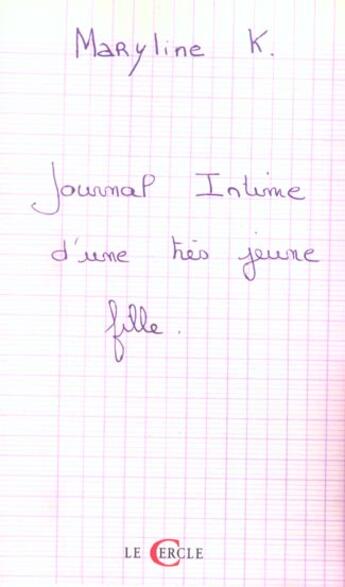 Maryline K.
Journal Intime
d'une très jeune
fille.
LE CERCLE